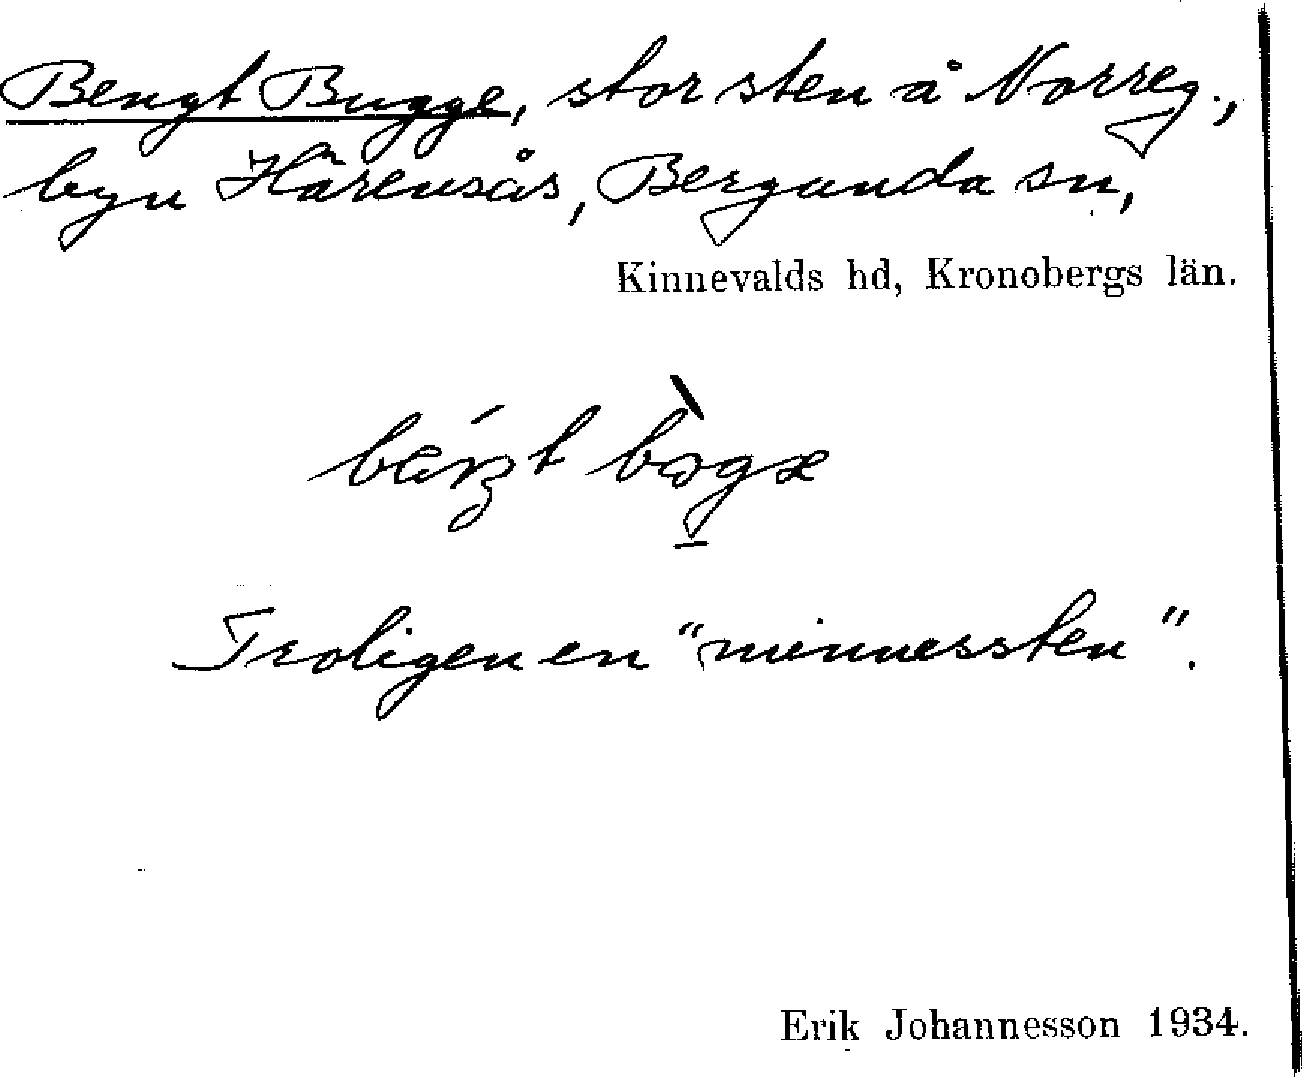 Bengt Bugge, stor sten å Norreg.,
byn Härensås, Bergunda sn,
Kinnevalds hd, Kronobergs län.
Troligen en "minnessten".
Erik Johannesson 1934.